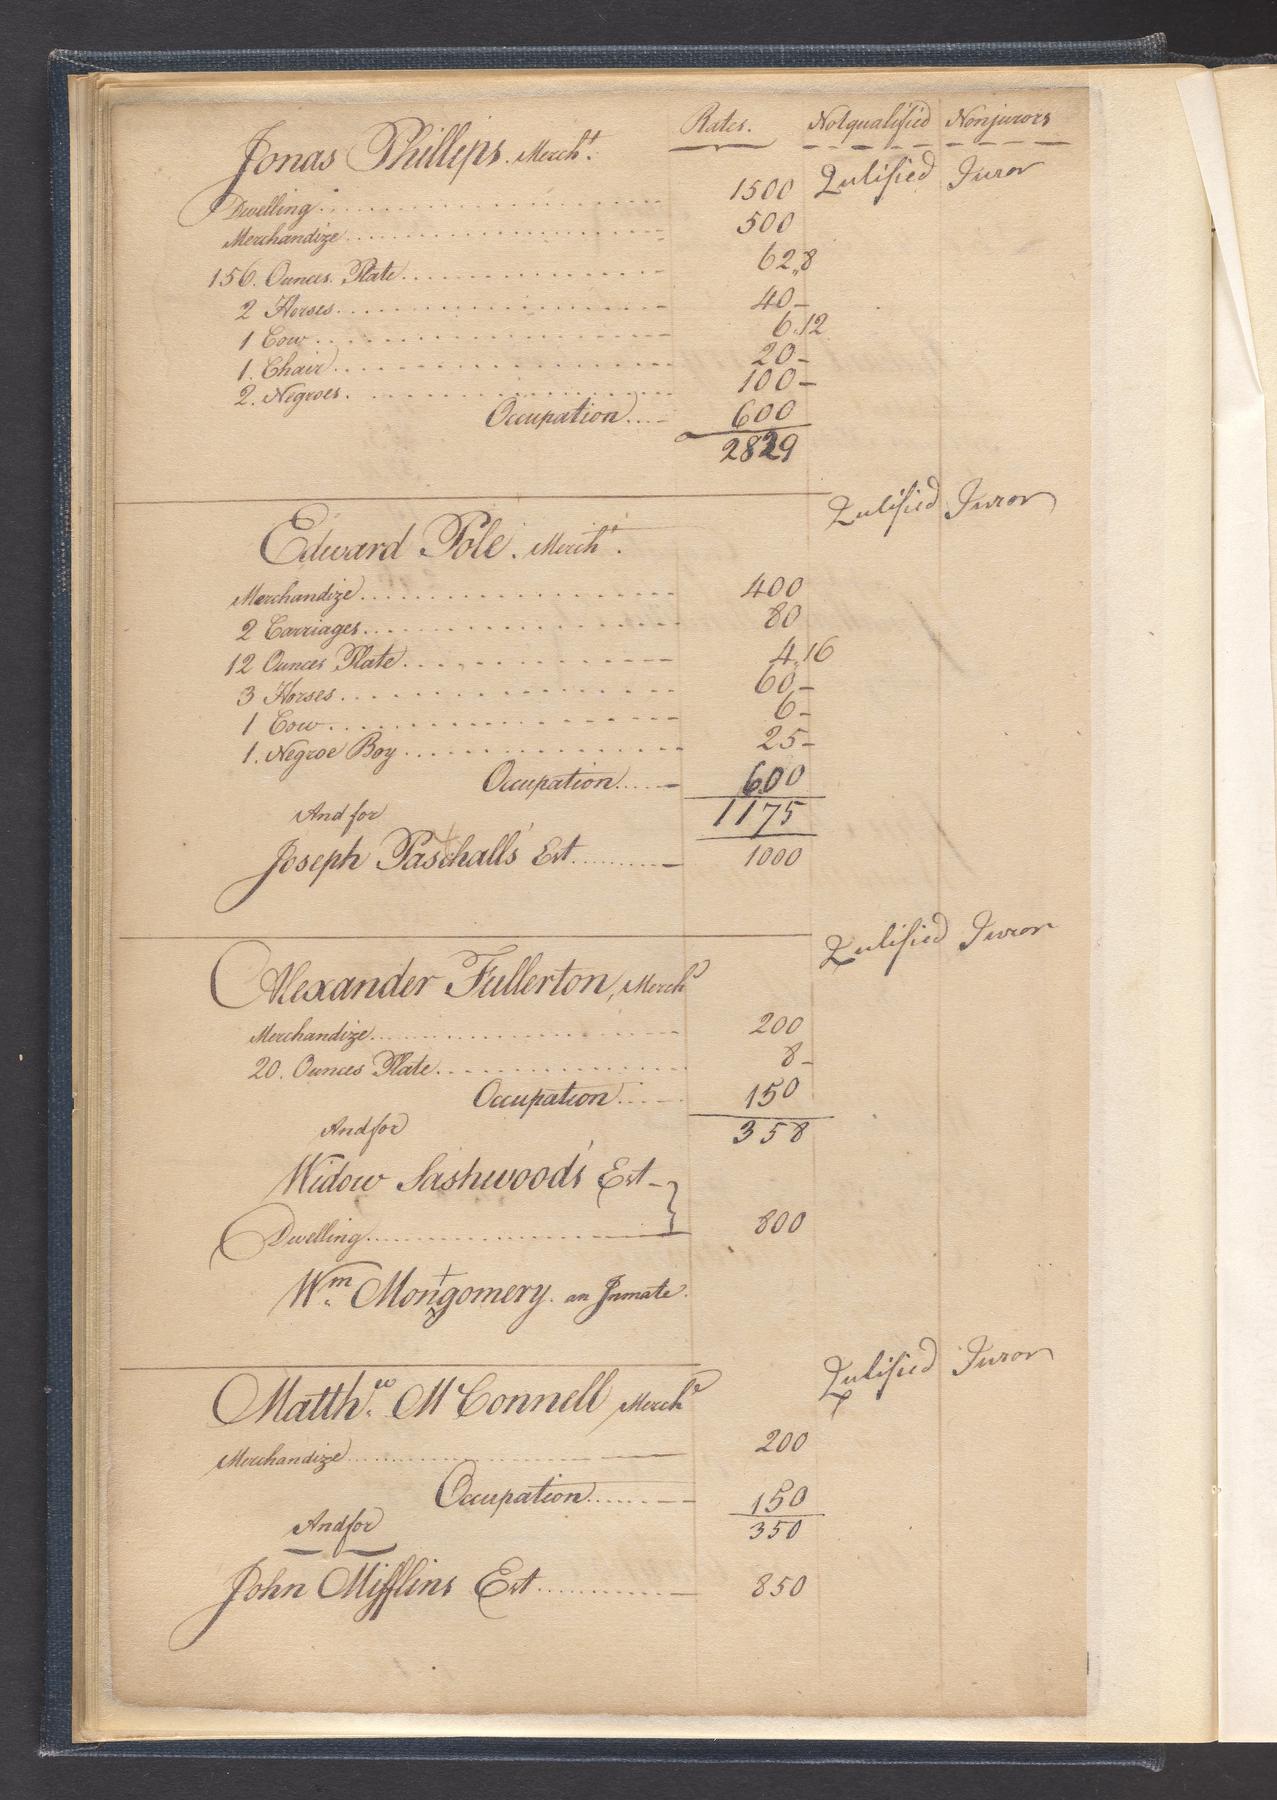 Rates. Notqualified Nonjurors
Jonas Phillips. Mercht.
Qulified Juror
Dwelling 1500
Merchandize 500
156. Ounces. Plate 62,,8
2 Horses 40-
1 Cow 6.12
1. Chair 20-
2. Negroes. 100-
Occupation 600
2829
Qulified Juror
Edward Pole. Mercht.
Merchandize 400
2 Carriages 80
12 Ounces Plate 4,,16
3 Horses 60-
1 Cow 6-
1. Negroe Boy 25-
Occupation 600
And for 1175
Joseph Paschall's Est 1000
Qulified Juror
Alexander Fullerton, Mercht
Merchandize 200
20. Ounces Plate 8-
Occupation 150
And for 358
Widow Sashwood's Est
Dwelling 800
Wm. Montgomery. an Inmate.
Qulified Juror
Matthew. McConnell Mercht
Merchandize 200
Occupation 150
And for 350
John Mifflins Est 850